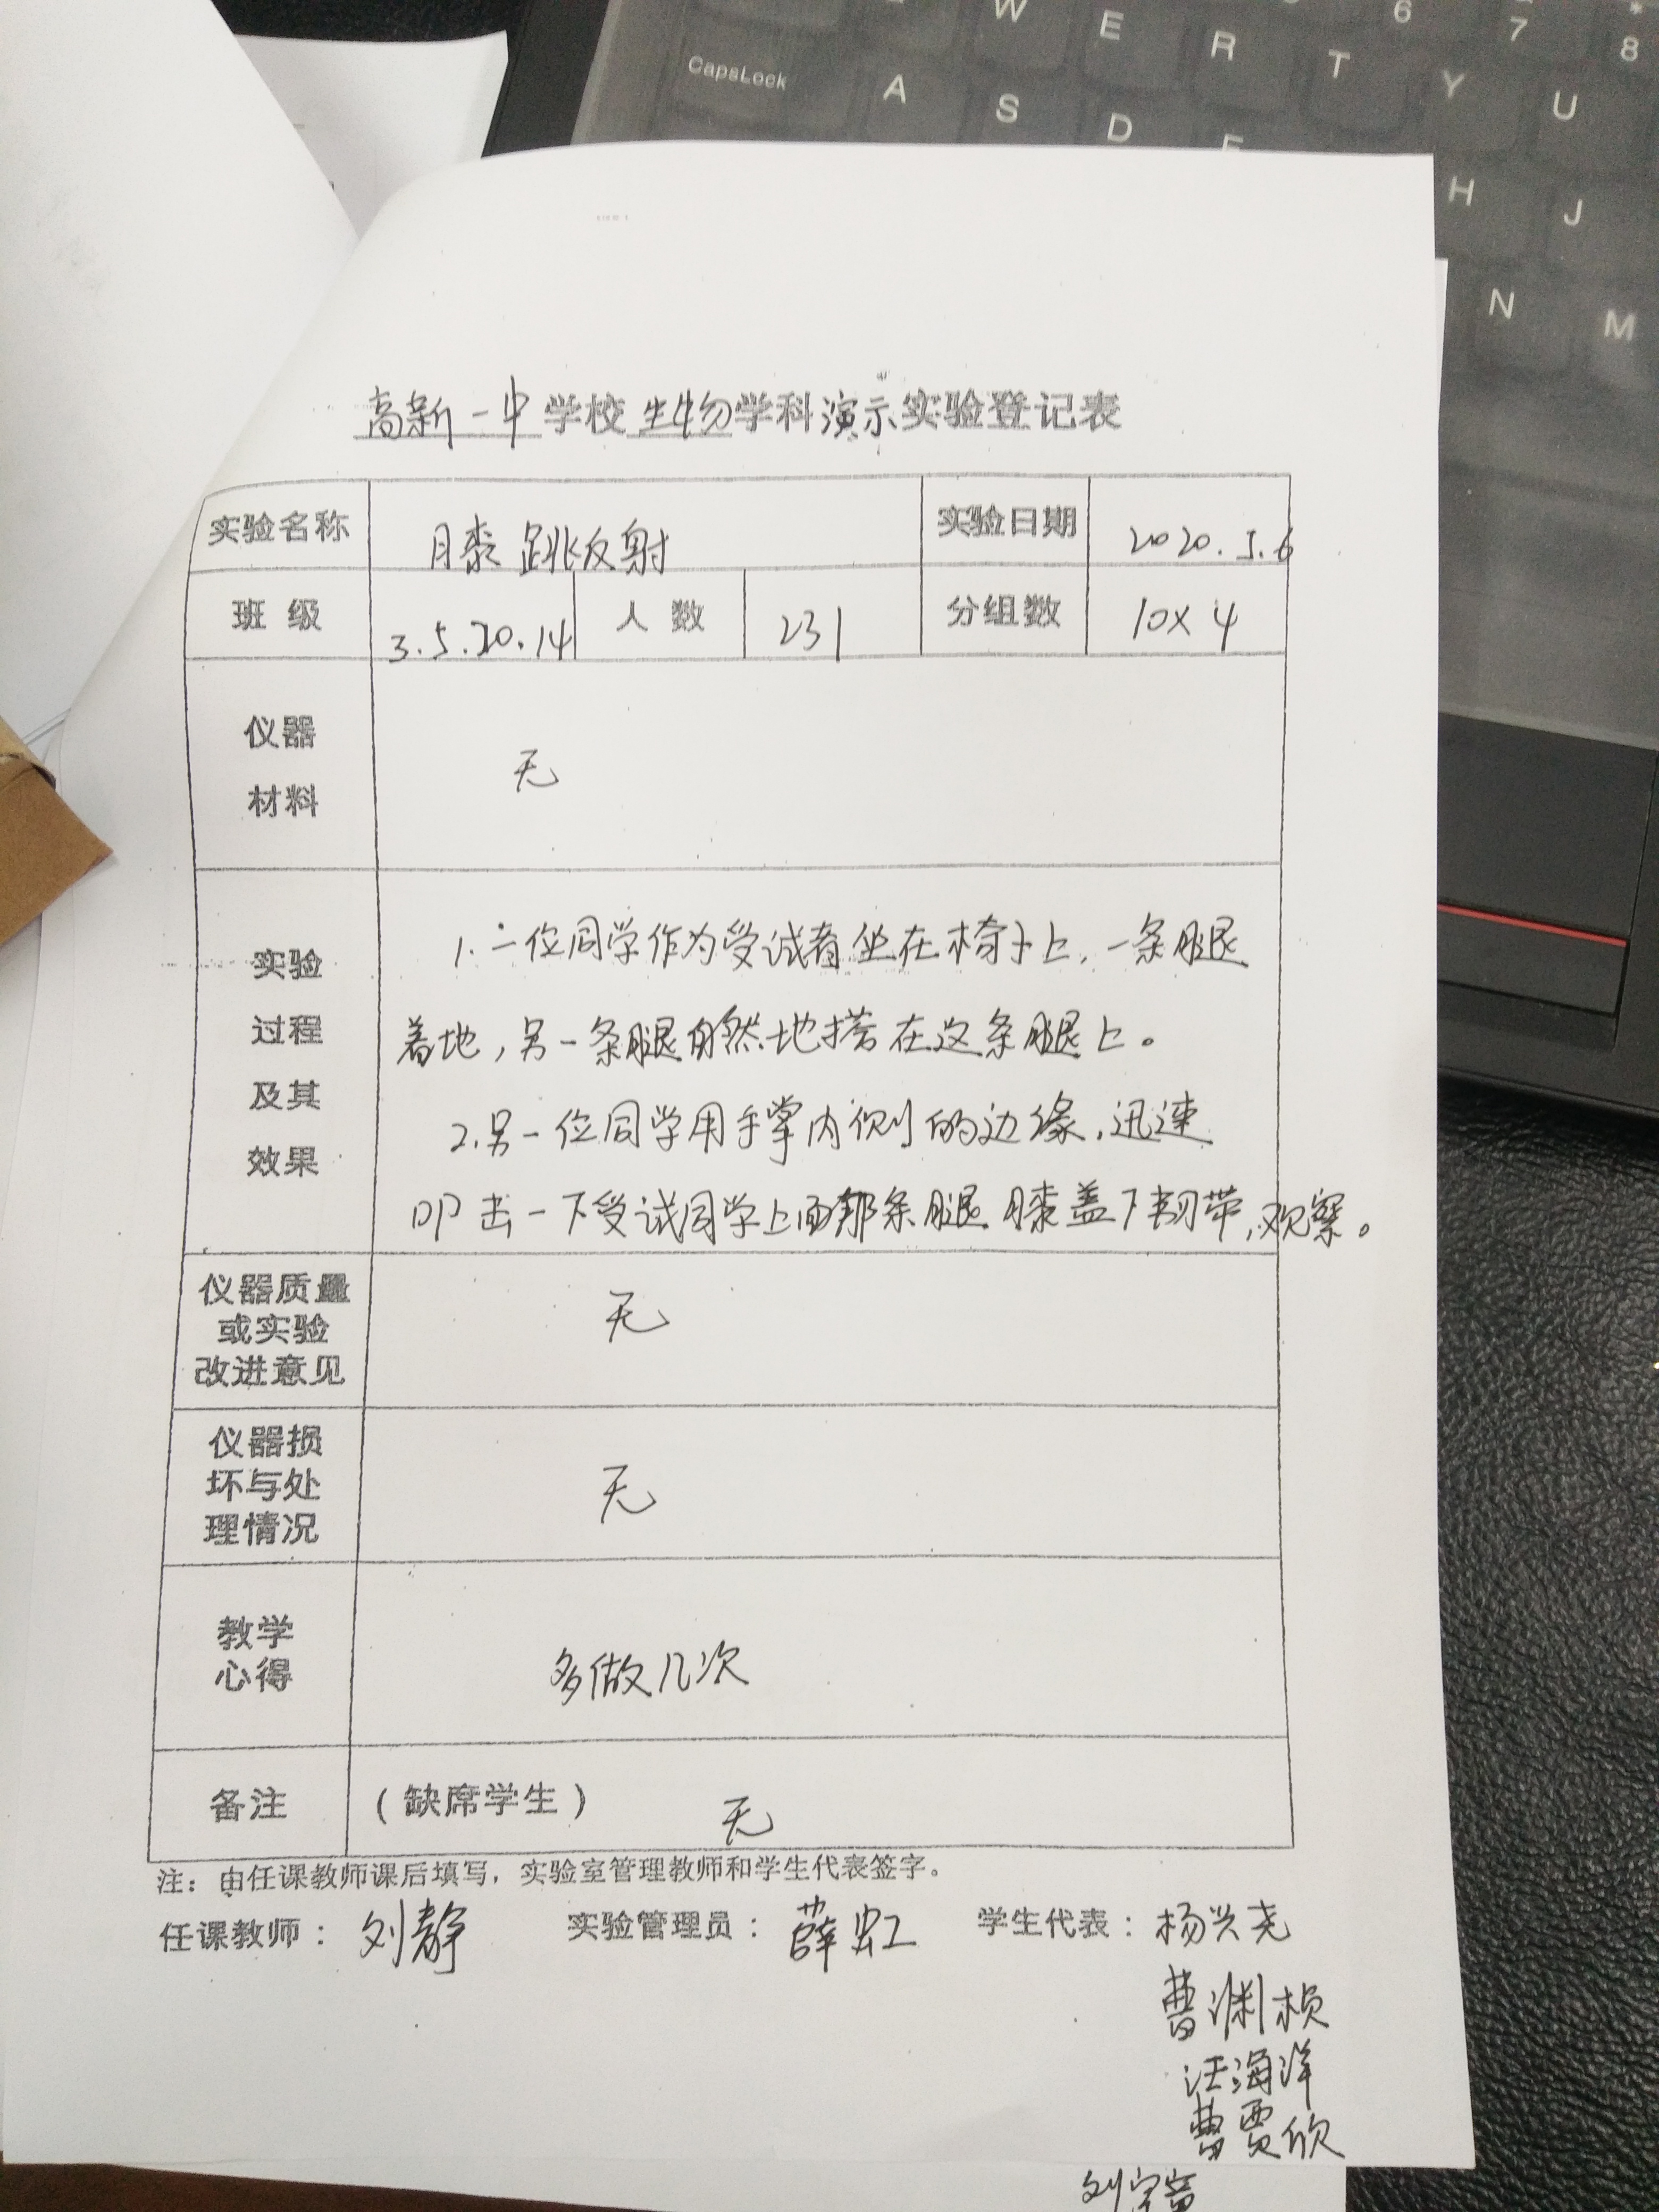 W E R T Y U 6 7 8
CapsLock A S D F H J
N M
高新一中学校生物学科演示实验登记表
实验名称 膝跳反射 实验日期 2020.5.6
班级 3.5.20.14 人数 231 分组数 10×4
仪器
材料
无
实验
过程
及其
效果
1.一位同学作为受试者坐在椅子上,一条腿
着地,另一条腿自然地搭在这条腿上。
2.另一位同学用手掌内侧的边缘,迅速
叩击一下受试同学上面那条腿膝盖下韧带,观察。
仪器质量
或实验
改进意见
无
仪器损
坏与处
理情况
无
教学
心得
多做几次
备注 (缺席学生) 无
注:由任课教师课后填写,实验室管理教师和学生代表签字。
任课教师:刘静 实验管理员:薛虹 学生代表:杨兴尧
曹渊桢
汪海洋
曹贾欣